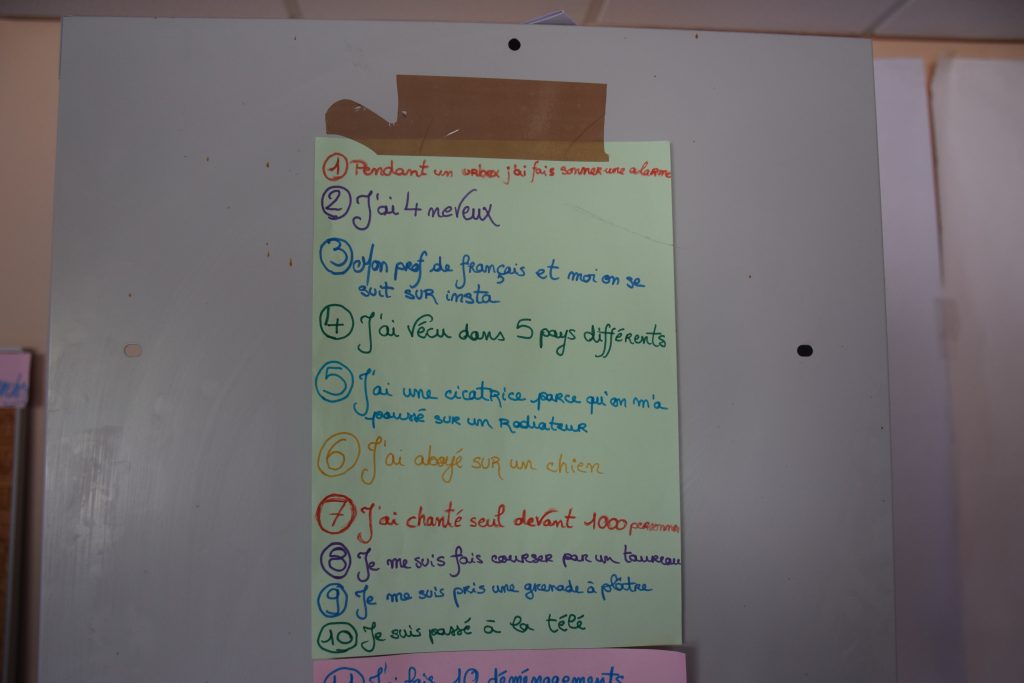 1 Pendant un urbex j'ai fais sonner une alarme
2 J'ai 4 neveux
3 Mon prof de français et moi on se
suit sur insta
4 J'ai vécu dans 5 pays différents
5 J'ai une cicatrice parce qu'on m'a
poussé sur un radiateur
6 J'ai aboyé sur un chien
7 J'ai chanté seul devant 1000 personnes
8 Je me suis fais courser par un taureau
9 Je me suis pris une grenade à plâtre
10 Je suis passé à la télé
11 J'ai fais 10 déménagements